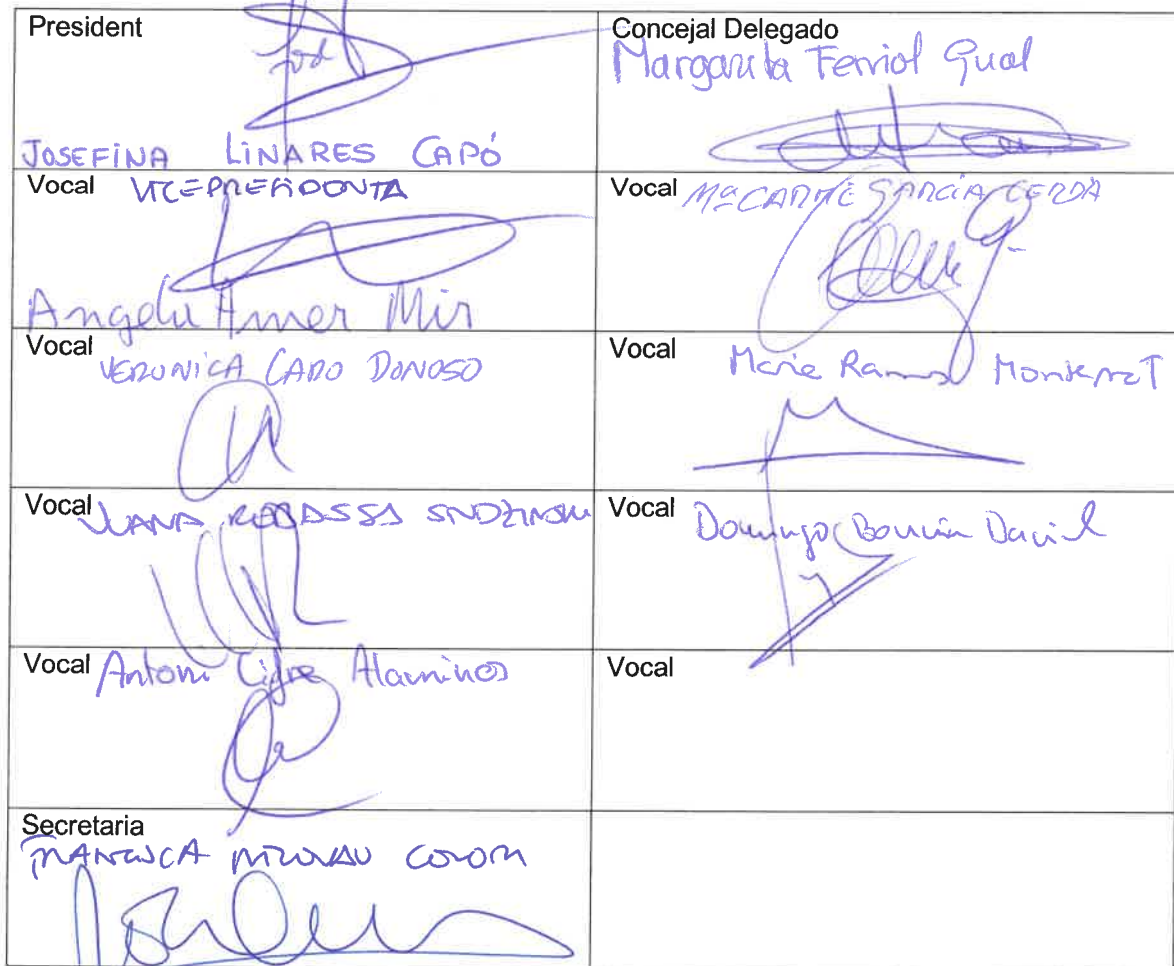 President
JOSEFINA LINARES CAPÓ
Concejal Delegado
Margarita Ferriol Gual
Vocal VICEPRESIDENTA
Angela Amer Mir
Vocal Mª CARME GARCÍA CERDÀ
Vocal
VERONICA CARO DONOSO
Vocal
Maria Ramis Montserrat
Vocal
JUANA
Vocal
Domingo
Vocal Antoni Cifre Alaminos
Vocal
Secretaria
FRANCISCA COLOM